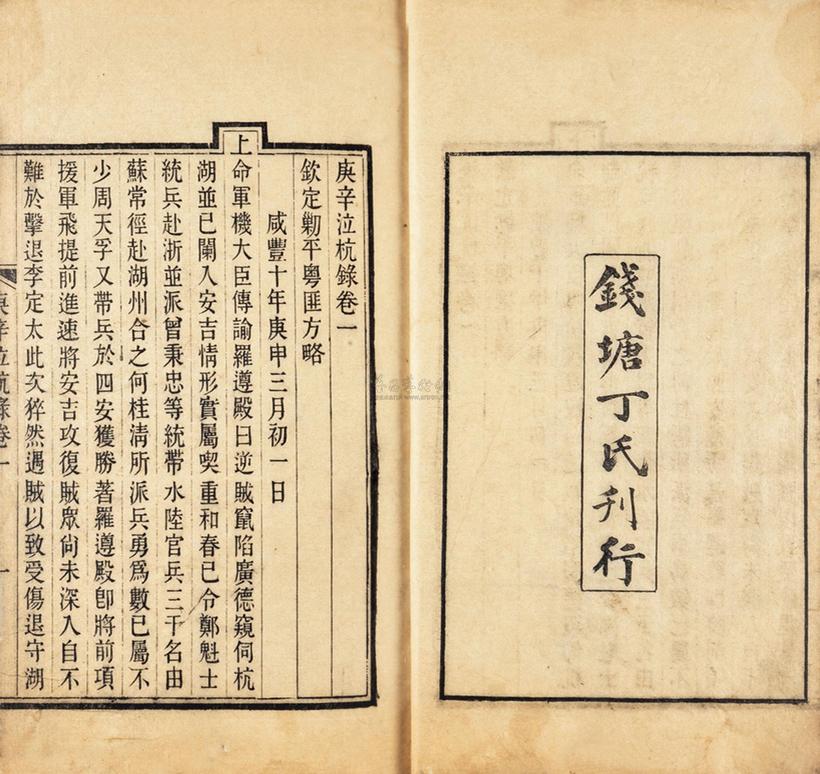 錢塘丁氏刊行
庚辛泣杭錄卷一
欽定勦平粵匪方略
咸豐十年庚申三月初一日
上
命軍機大臣傳諭羅遵殿曰逆賊竄陷廣德窺伺杭
湖並已闌入安吉情形實屬喫重和春已令鄭魁士
統兵赴浙並派曾秉忠等統帶水陸官兵三千名由
蘇常徑赴湖州合之何桂清所派兵勇為數已屬不
少周天孚又帶兵於四安獲勝著羅遵殿卽將前項
援軍飛提前進速將安吉攻復賊眾尙未深入自不
難於擊退李定太此次猝然遇賊以致受傷退守湖
庚辛泣杭錄卷一
一